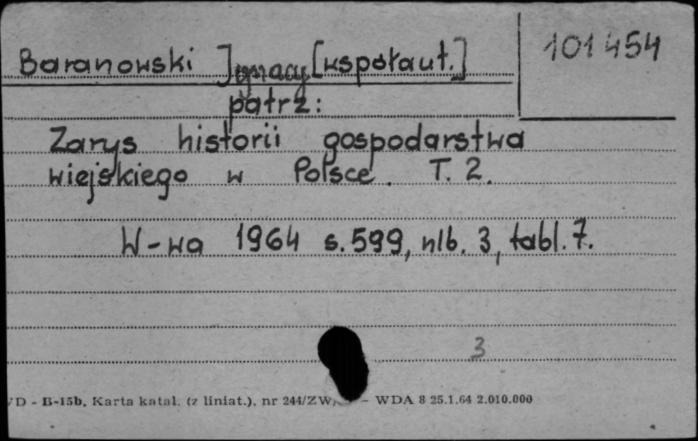 Baranowski Ignacy [współaut.]
101 454
patrz:
Zarys historii gospodarstwa
wiejskiego w Polsce. T. 2.
W-wa 1964 s. 599, nlb. 3, tabl. 7.
3
D - B-15b, Karta katal. (z liniat.), nr 244/ZW, — WDA 8 25.1.64 2.010.000